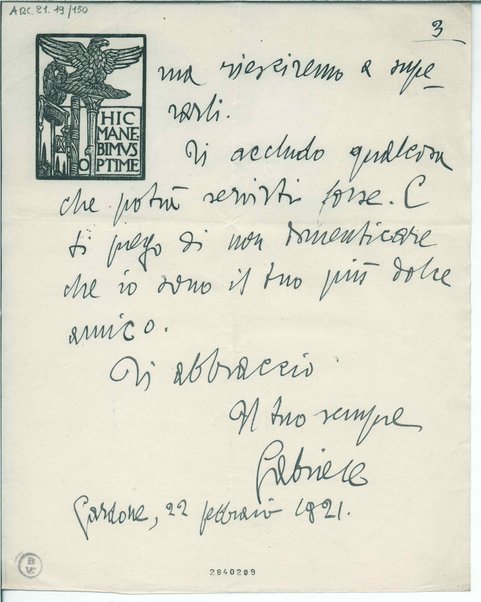 ARC. 21. 19/150
3
HIC
MANE
BIMVS
OPTIME
ma riesciremo a supe
rarli.
Ti accludo qualcosa
che potrà servirti forse. E
ti prego di non dimenticare
che io sono il tuo più dolce
amico.
Ti abbraccio
Il tuo sempre
Gabriele
Gardone, 22 febbraio 1921.
B
VE
2840209